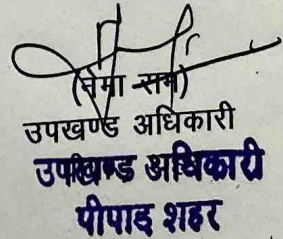 (नेमा राम)
उपखण्ड अधिकारी
उपखण्ड अधिकारी
पीपाड शहर